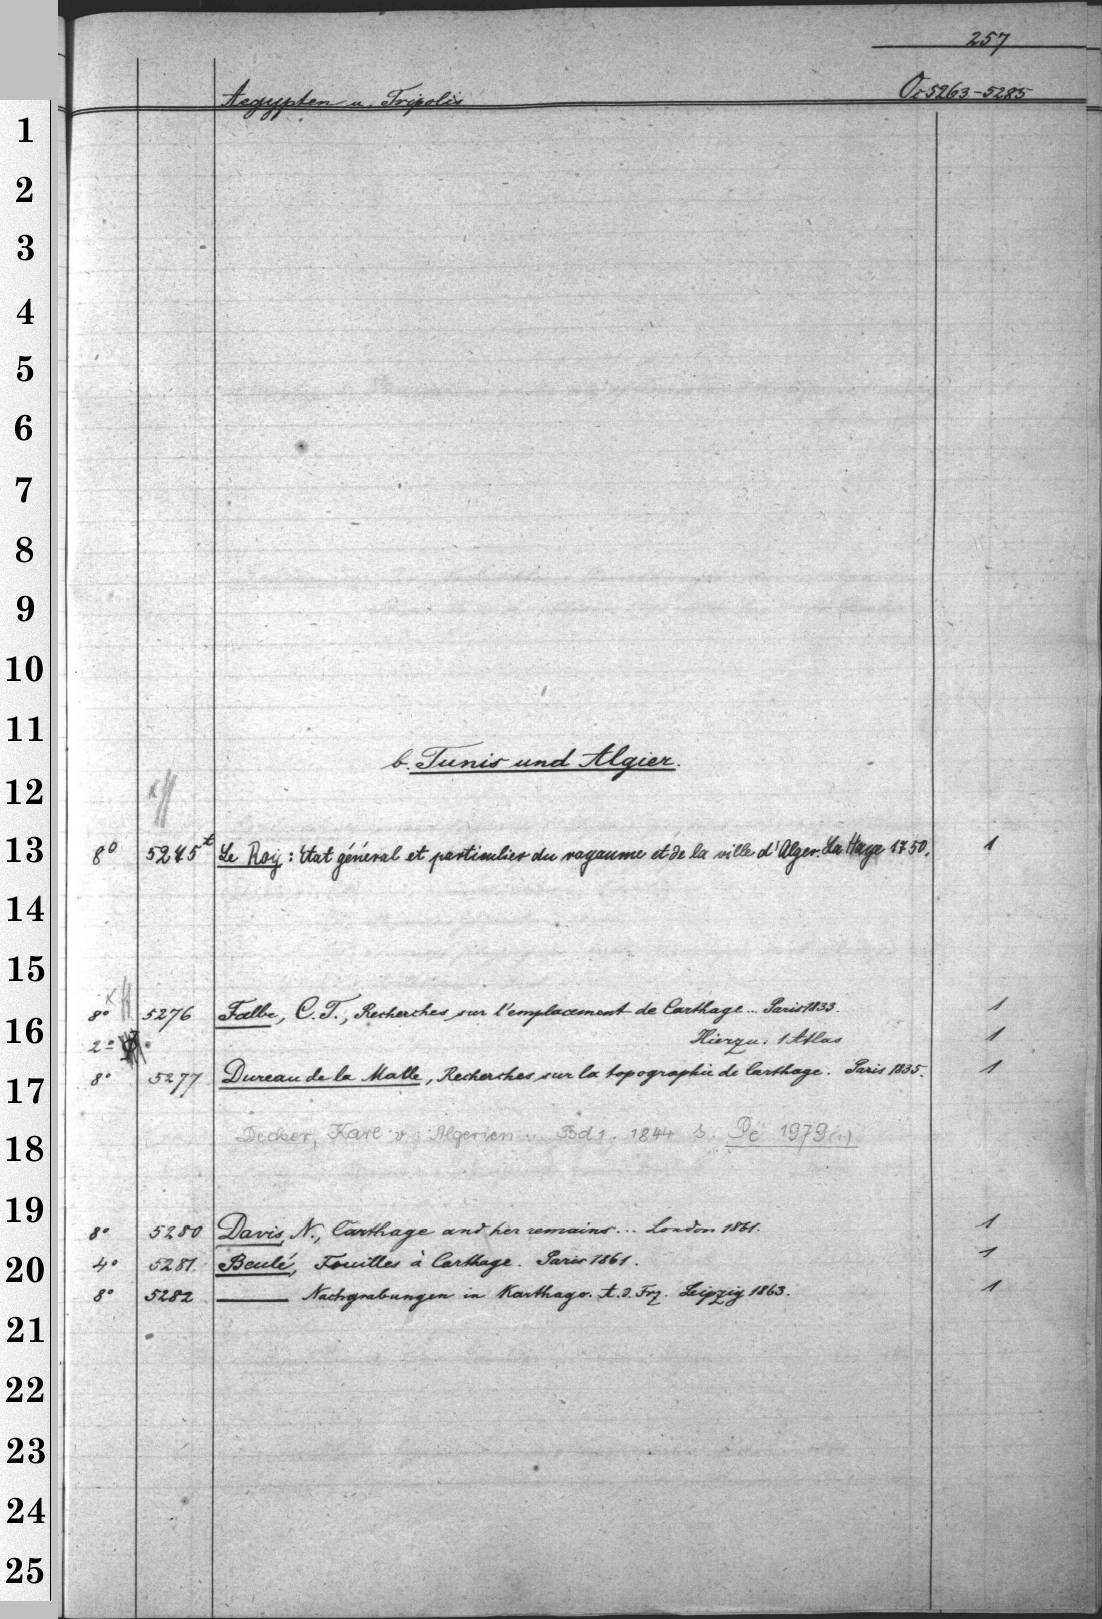 257
Aegypten u. Tripolis Oc 5263-5285
1
2
3
4
5
6
7
8
9
10
11
b. Tunis und Algier.
12
13 8° 5275t Le Roy: état général et particulier du royaume et de la ville d'Alger. La Haye 1750. 1
14
15
8° 5276 Falbe, C. T., Recherches sur l'emplacement de Carthage... Paris 1833. 1
16 2° Hierzu: 1 Atlas 1
17 8° 5277 Dureau de la Malle, Recherches sur la topographie de Carthage. Paris 1835. 1
18 Decker, Karl v.: Algerien. Bd 1. 1844 s. Pc 1979(1)
19 8° 5280 Davis, N., Carthage and her remains... London 1861. 1
20 4° 5281 Beulé, Fouilles à Carthage. Paris 1861. 1
8° 5282 —— Nachgrabungen in Karthago. A. d. Frz. Leipzig 1863. 1
21
22
23
24
25